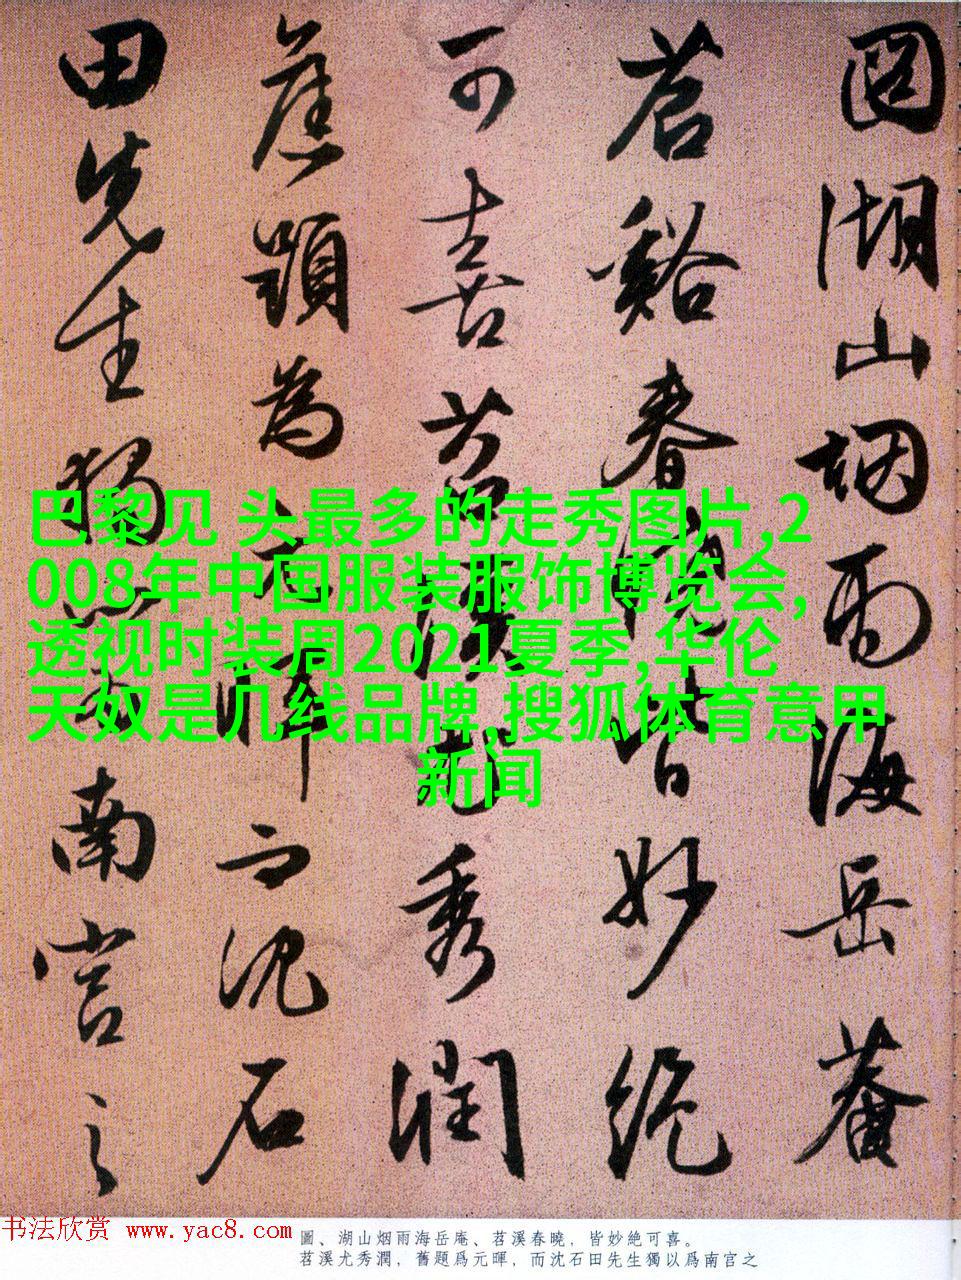 圖湖山烟雨海岳菴
苕谿春曉皆妙絶
可喜苕溪尤秀潤
舊題為元暉而沈石
田先生獨以為南宫之
巴黎见 头最多的走秀图片,2
008年中国服装服饰博览会,
透视时装周2021夏季,华伦
天奴是几线品牌,搜狐体育意甲
新闻
书法欣赏 www.yac8.com
圖、湖山烟雨海岳庵、苕溪春曉，皆妙絶可喜。
苕溪尤秀潤，舊題爲元暉，而沈石田先生獨以爲南宫之